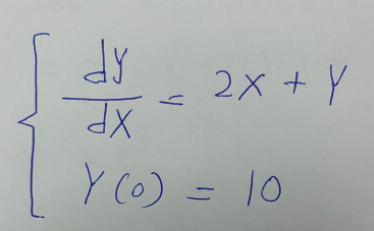 dy/dx = 2x + y
y(0) = 10